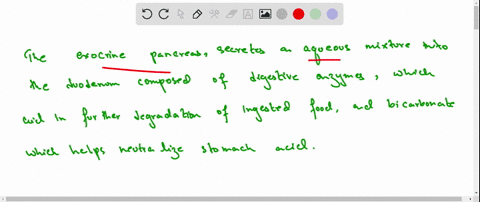 The exocrine pancreas, secretes an aqueous mixture into
the duodenum composed of digestive enzymes, which
aid in further degradation of ingested food, and bicarbonate
which helps neutralize stomach acid.